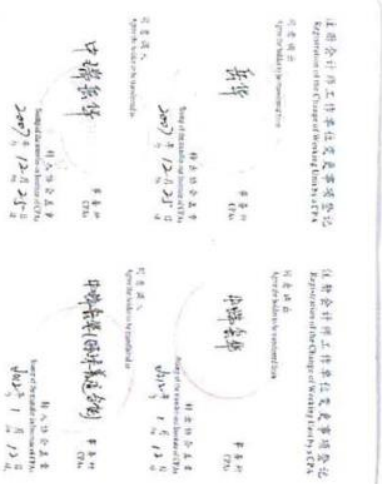 注册会计师工作单位变更事项登记
Registration of the Change of Working Unit by a CPA
同意调出
Agree the holder to be transferred from
岳华
事务所
CPAs
转出协会盖章
Stamp of the transfer-out Institute of CPAs
2007年12月25日
同意调入
Agree the holder to be transferred to
中瑞岳华
事务所
CPAs
转入协会盖章
Stamp of the transfer-in Institute of CPAs
2007年12月25日
注册会计师工作单位变更事项登记
Registration of the Change of Working Unit by a CPA
同意调出
Agree the holder to be transferred from
中瑞岳华
事务所
CPAs
转出协会盖章
Stamp of the transfer-out Institute of CPAs
1月12日
同意调入
Agree the holder to be transferred to
事务所
CPAs
转入协会盖章
Stamp of the transfer-in Institute of CPAs
1月12日